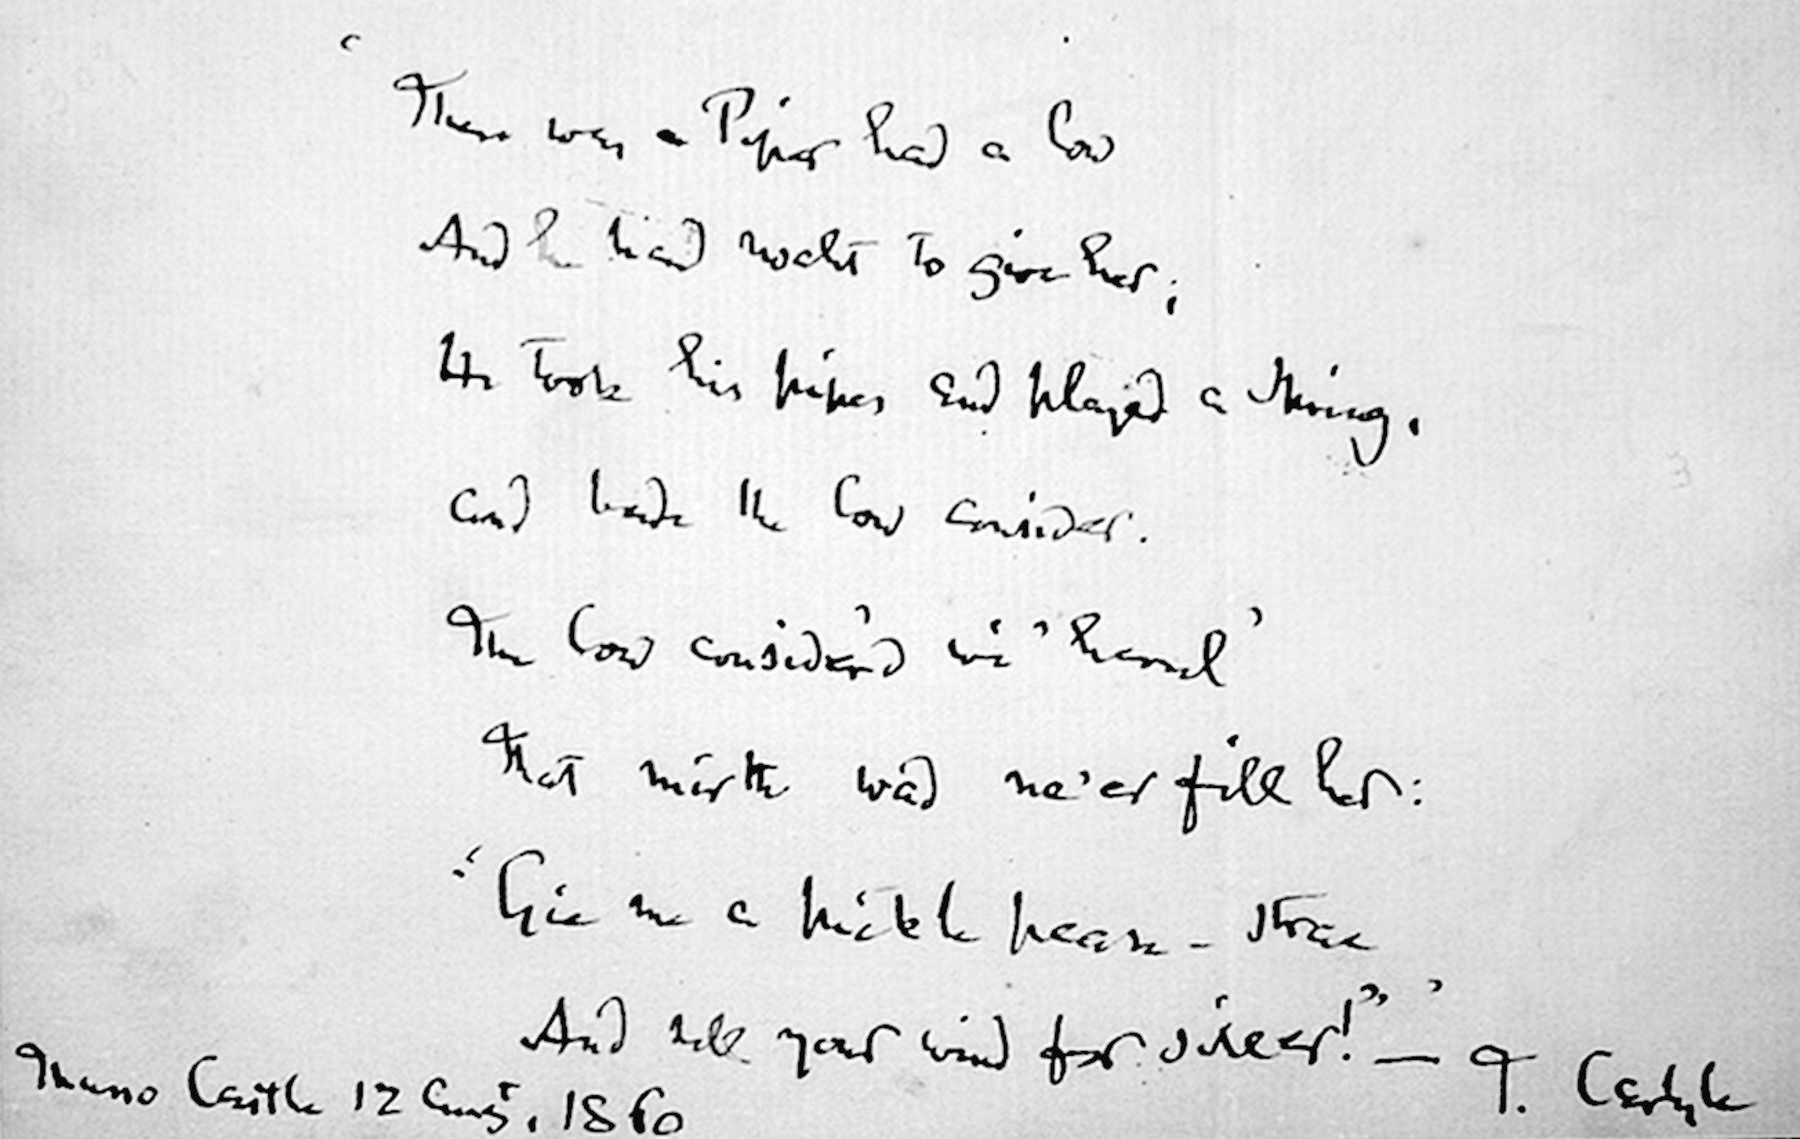 ‘There was a Piper had a Cow
And he had nocht to give her;
He took his pipes and played a spring,
and bade the Cow consider.
The Cow consider'd wi' hersel'
That mirth wad ne'er fill her:
“Gie me a pickle pease-strae
And sell your wind for siller!”’ — T. Carlyle
Thurso Castle 12 Augt, 1860